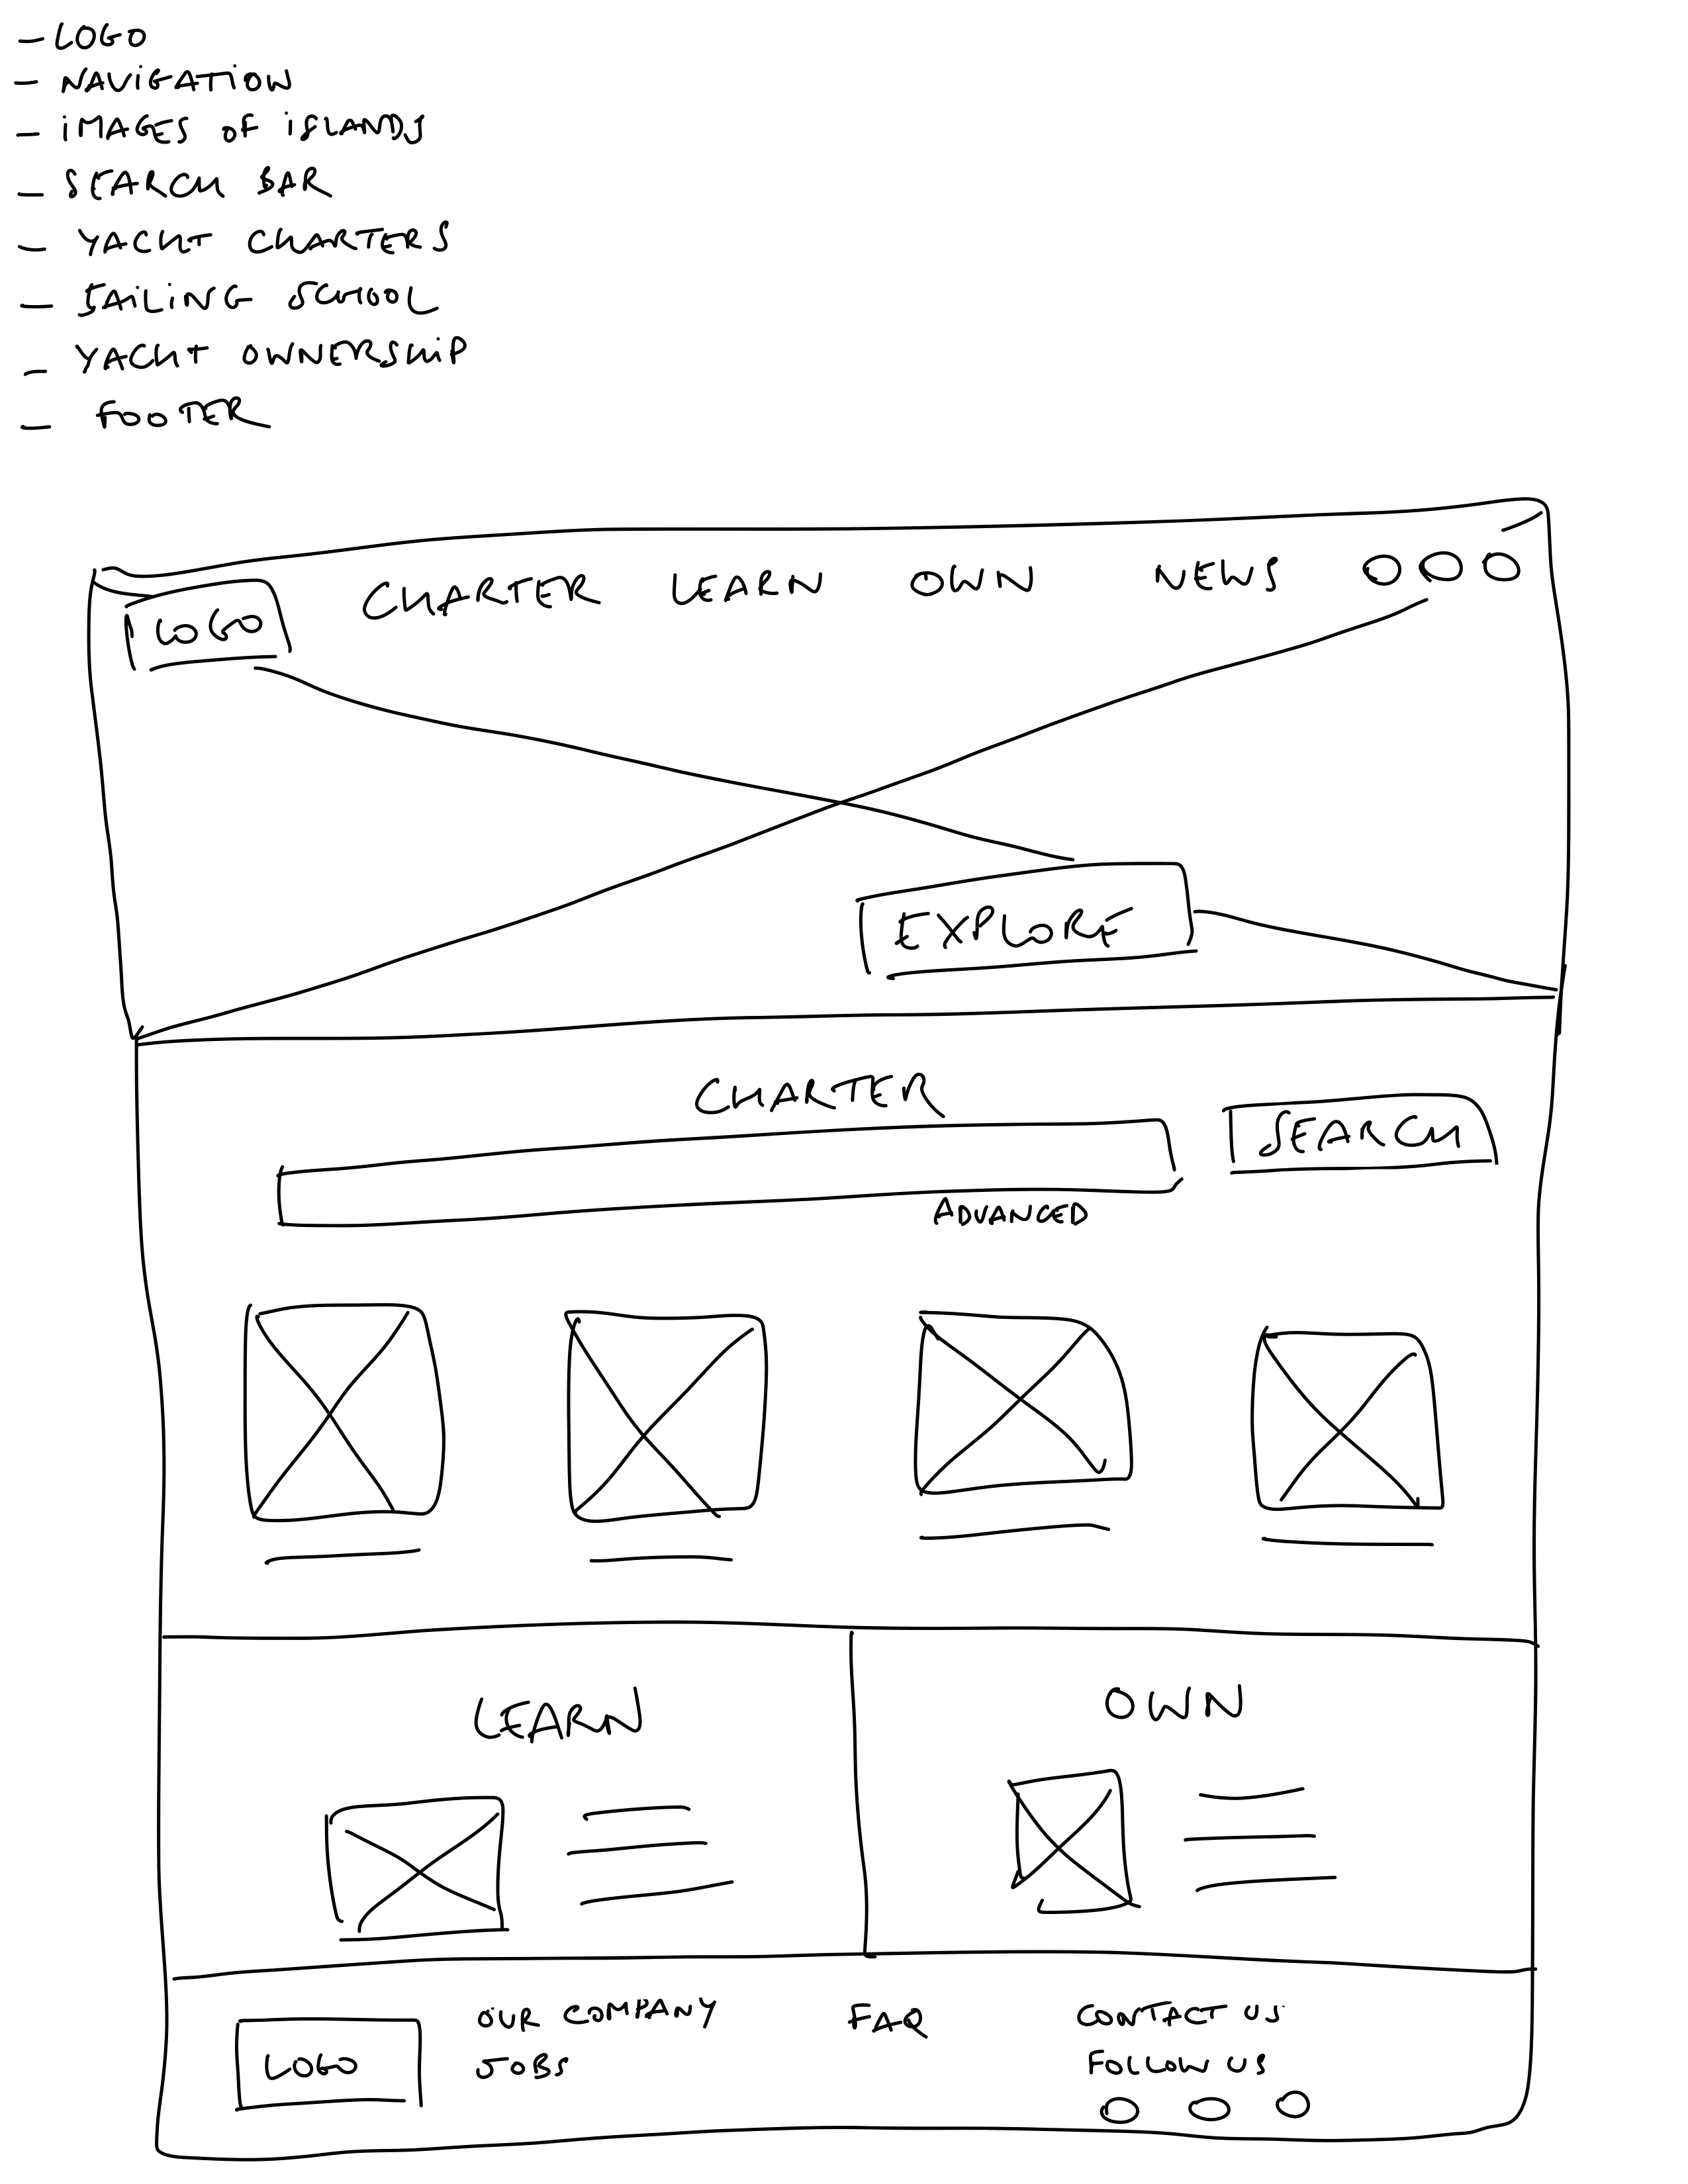 - LOGO
- NAViGATiON
- iMAGES OF iSLANDS
- SEARCH BAR
- YACHT CHARTERS
- SAiLiNG SCHOOL
- YACHT OWNERSHiP
- FOOTER
LOGO CHARTER LEARN OWN NEWS
EXPLORE
CHARTER
SEARCH
ADVANCED
LEARN OWN
OUR COMPANY FAQ CONTACT US
LOGO JOBS FOLLOW US